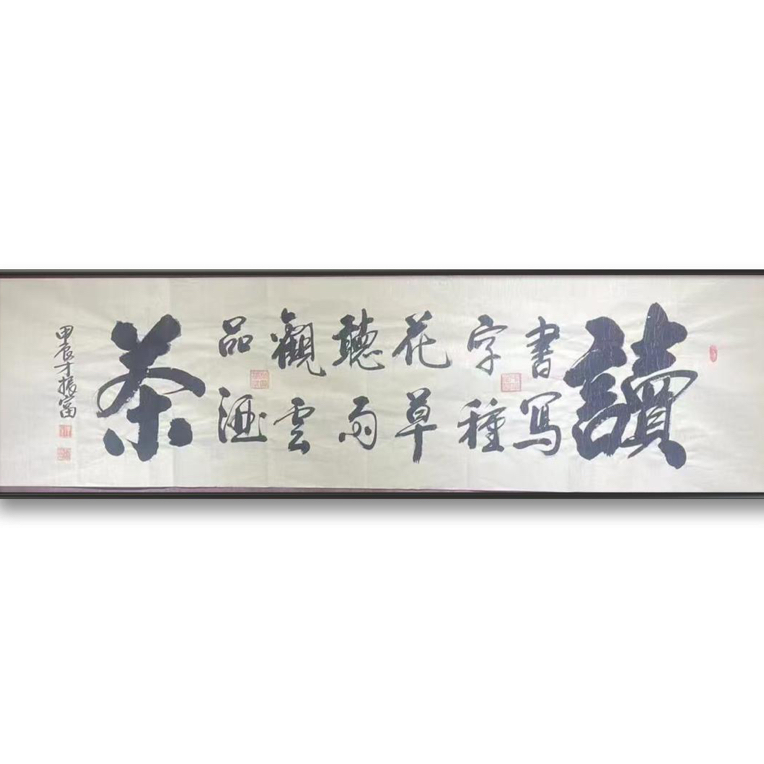 讀
書寫
字種
花草
聽雨
觀雲
品酒
茶
甲辰才振富